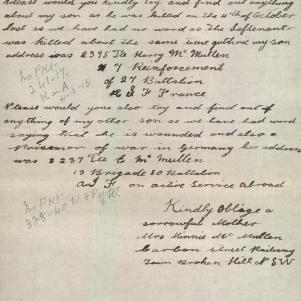 Please would you kindly try and find out anything
about my son as he was killed on the 4th of October
last as we have had no word as the Leftenant
was killed about the same time as my son
address was 2375 Pte Henry McMullen
# 7 Reinforcement
of 27 Battalion
A I F France
no PKT
2-1-17
Please would you also try and find out if
anything of my other son as we have had word
saying that he is wounded and also a
Prisoner of war in Germany his address
was 2237 Pte E McMullen
13 Brigade 50 Battalion
A I F on active Service Abroad
no PKT
Kindly Oblige a
sorrowful Mother
Mrs Minnie McMullen
Carbon street Railway
Town Broken Hill N S W